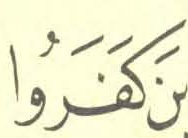 ينَ كَفَرُوا